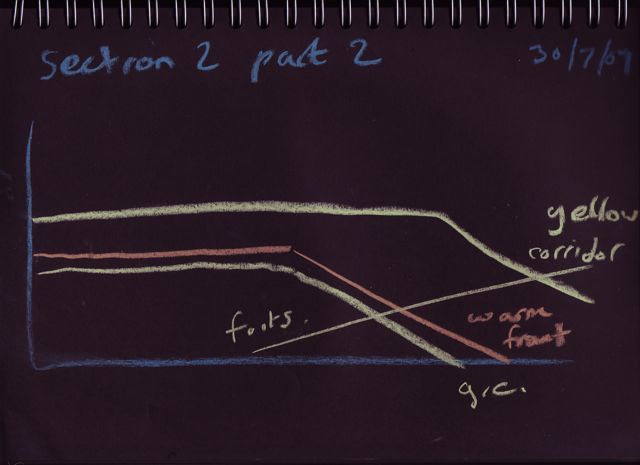 section 2 part 2
30/7/07
yellow
corridor
foots.
warm
front
g.c.